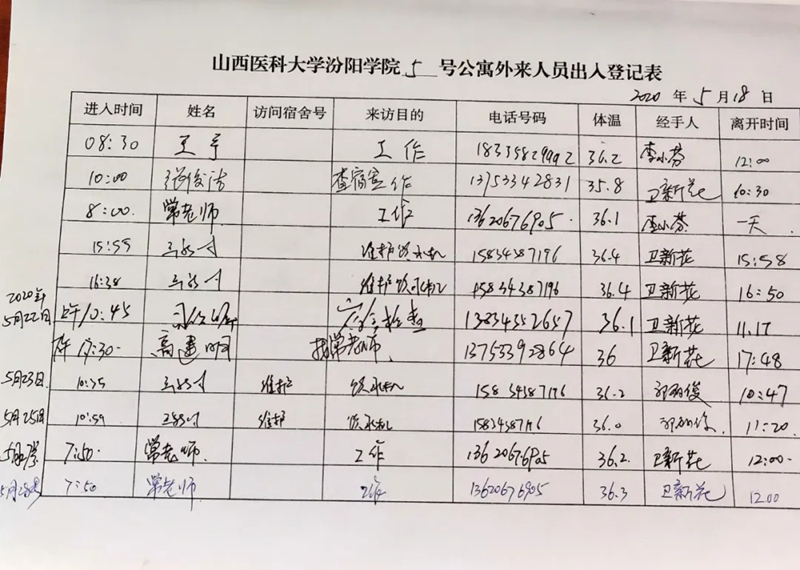 山西医科大学汾阳学院 5 号公寓外来人员出入登记表
2020 年 5 月 18 日
进入时间 姓名 访问宿舍号 来访目的 电话号码 体温 经手人 离开时间
08:30 王宇 工作 36.2 李小芬 12:00
10:00 查宿舍工作 13753342831 35.8 卫新花 10:30
8:00 常老师 工作 13620676905 36.1 李小芬 一天
15:55 维护饮水机 15834387196 36.4 卫新花 15:58
16:38 维护饮水机 15834387196 36.4 卫新花 16:50
2020年
5月22日 上午10:45 检查 13834352657 36.1 卫新花 11.17
17:30 高建明 找常老师 13753392864 36 卫新花 17:48
5月23日 10:35 维护 饮水机 15834387196 36.2 10:47
5月25日 10:59 维护 饮水机 15834387196 36.0 11:20
7:50 常老师 工作 13620676905 36.2 卫新花 12:00
7:50 常老师 工作 13620676905 36.3 卫新花 1200